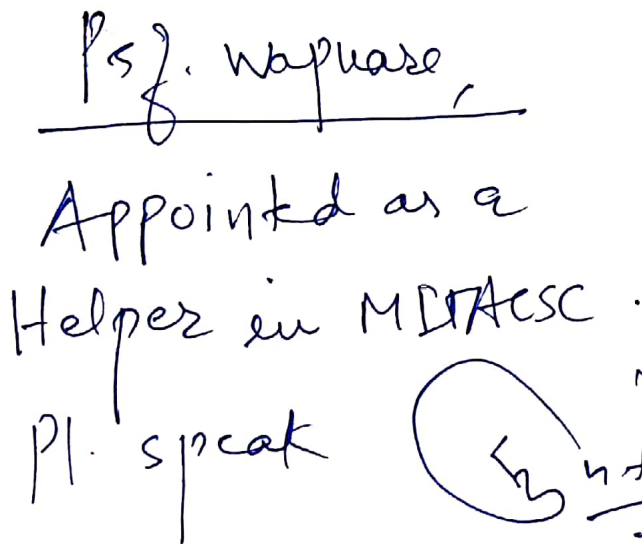 Prof. Waphare,
Appointed as a
Helper in MITACSC.
Pl. speak